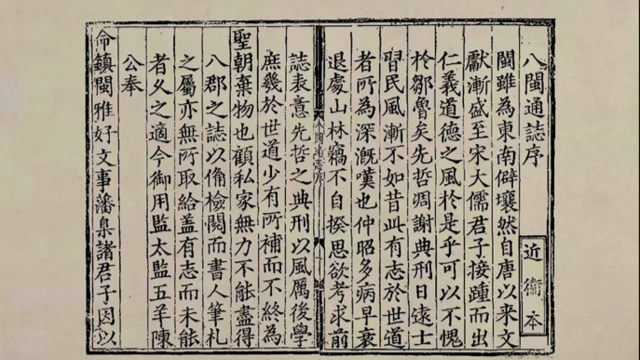 八閩通誌序
閩雖為東南僻壤然自唐以來文
獻漸盛至宋大儒君子接踵而出
仁義道德之風於是乎可以不愧
於鄒魯矣先哲凋謝典刑日遠士
習民風漸不如昔此有志於世道
者所為深慨嘆也仲昭多病早衰
退處山林竊不自揆思欲考求前
近衛本
誌表意先哲之典刑以風厲後學
庶幾於世道少有所補而不終為
聖朝棄物也顧私家無力不能盡得
八郡之誌以俻檢閱而書人筆札
之屬亦無所取給蓋有志而未能
者久之適今御用監太監五羊陳
公奉
命鎮閩雅好文事藩臬諸君子因以